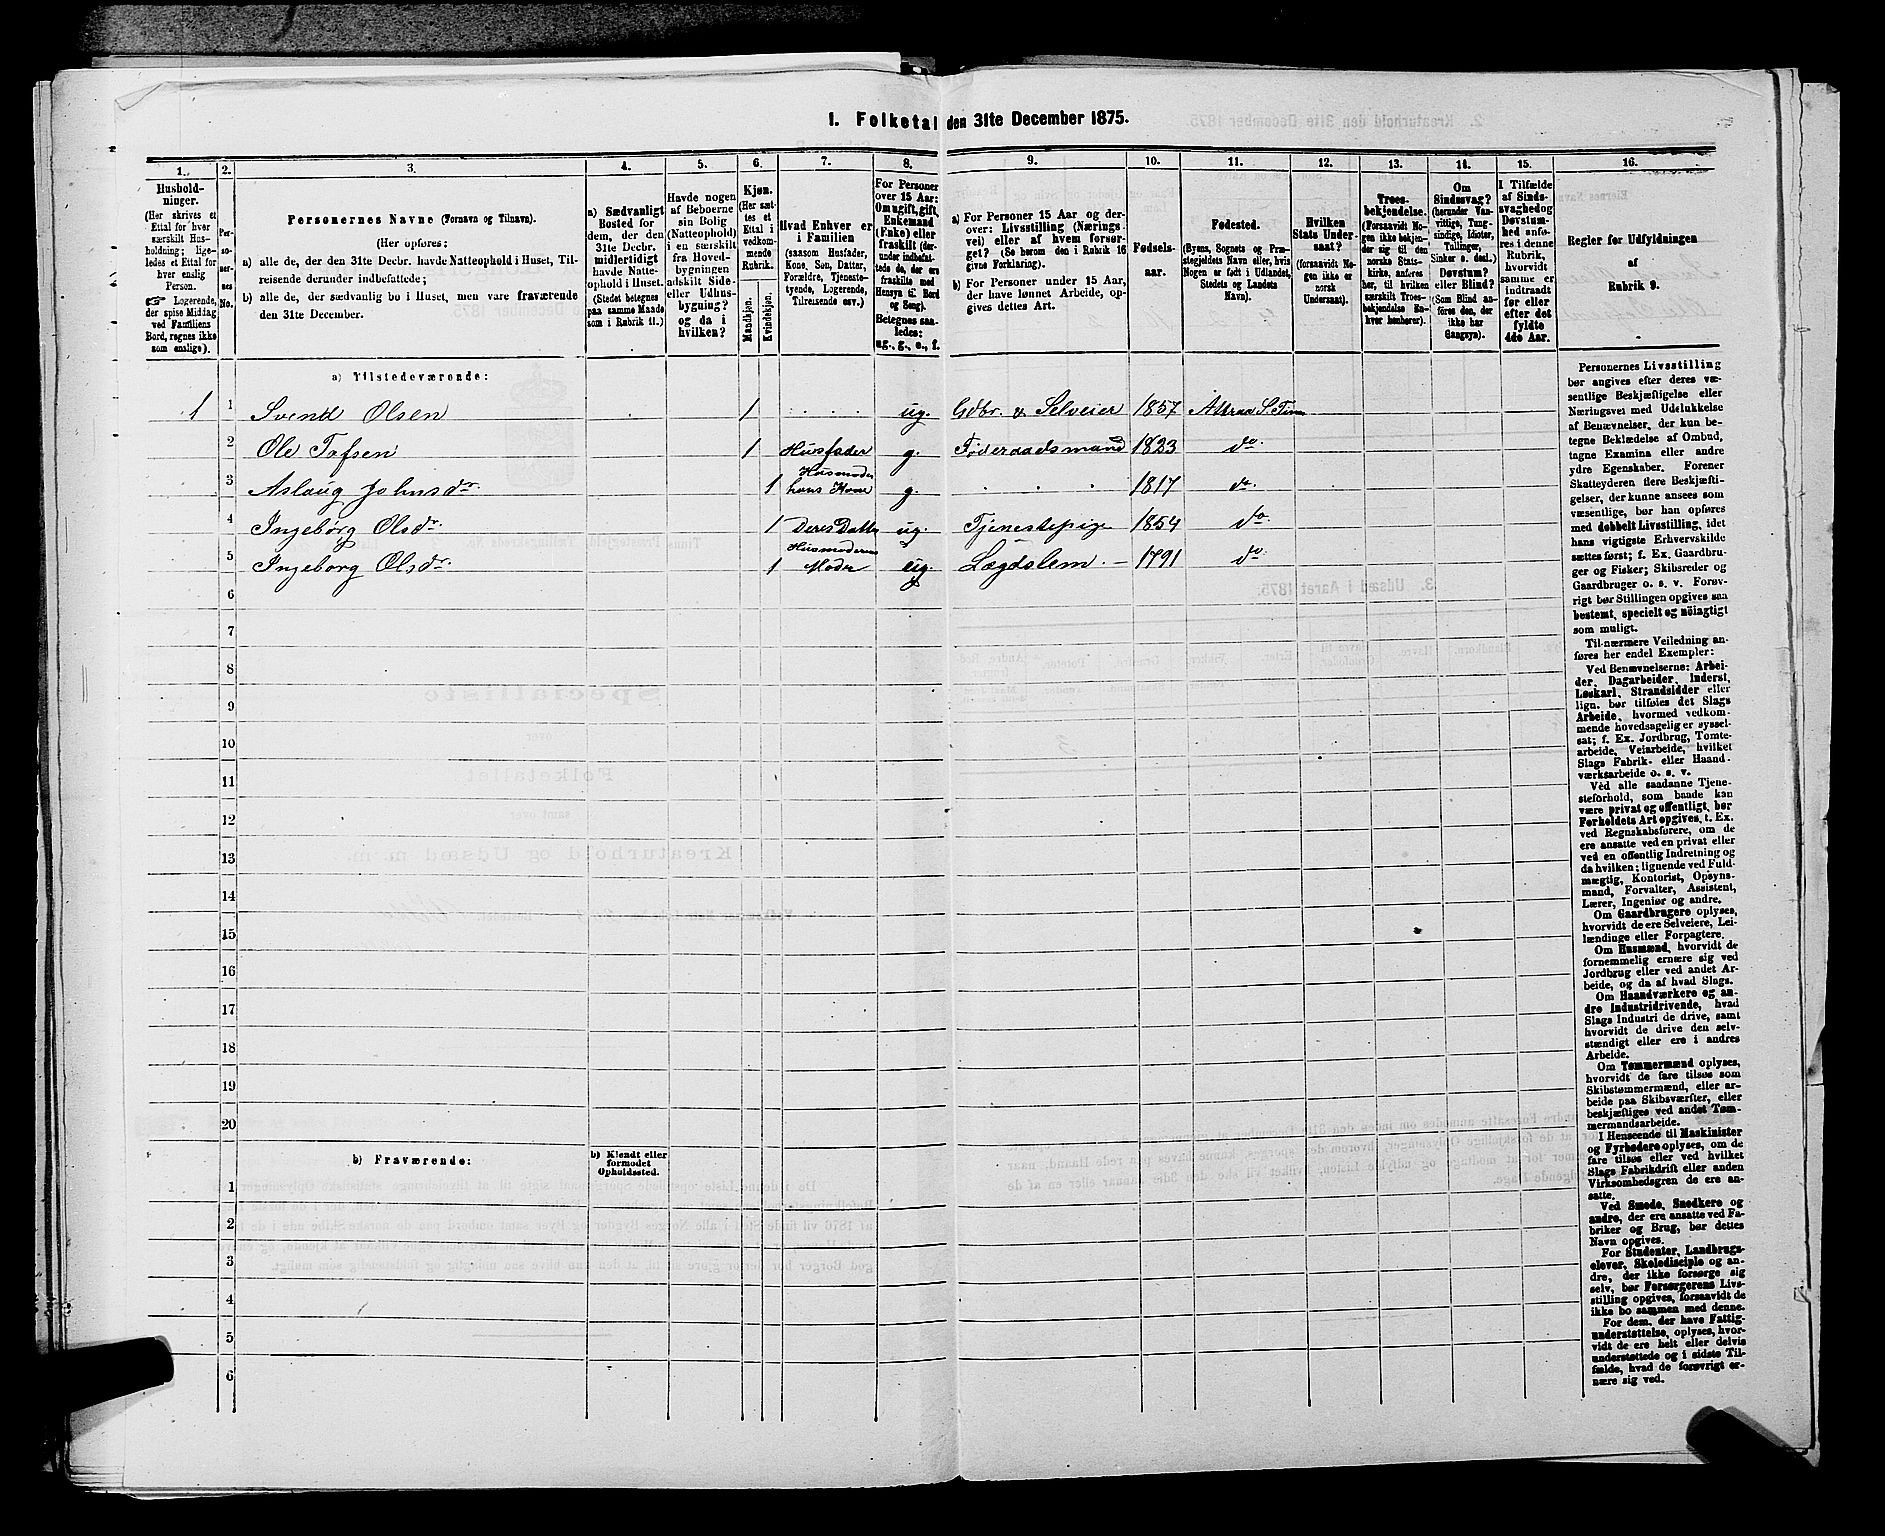 1. Folketal den 31te December 1875.
1. 2. 3. 4. 5. 6. 7. 8. 9. 10. 11. 12. 13. 14. 15. 16.
Hushold-
ninger.
(Her skrives et
Ettal for hver
særskilt Hus-
holdning; lige-
ledes et Ettal for
hver enslig
Person.
☞ Logerende,
der spise Middag
ved Familiens
Bord, regnes ikke
som enslige).
Per-
so-
ner-
nes
No.
Personernes Navne (Fornavn og Tilnavn).
(Her opføres:
a) alle de, der den 31te Decbr. havde Natteophold i Huset, Til-
reisende derunder indbefattede;
b) alle de, der sædvanlig bo i Huset, men vare fraværende
den 31te December.
a) Sædvanligt
Bosted for
dem, der den
31te Decbr.
midlertidigt
havde Natte-
ophold i Huset.
(Stedet betegnes
paa samme Maade
som i Rubrik 11.)
Havde nogen
af Beboerne
sin Bolig
(Natteophold)
i en særskilt
fra Hoved-
bygningen
adskilt Side-
eller Udhus-
bygning?
og da i
hvilken?
Kjøn.
(Her sæt-
tes et
Ettal i
vedkom-
mende
Rubrik.
Mandkjøn.
Kvindekjøn.
Hvad Enhver er
i Familien
(saasom Husfader,
Kone, Søn, Datter,
Forældre, Tjeneste-
tyende, Logerende,
Tilreisende osv.)
For Personer
over 15 Aar:
Om ugift, gift,
Enkemand
(Enke) eller
fraskilt (der-
under indbefat-
tede de, der ere
fraskilte med
Hensyn til Bord
og Seng).
Betegnes saa-
ledes:
ug., g., e., f.
a) For Personer 15 Aar og der-
over: Livsstilling (Nærings-
vei) eller af hvem forsør-
get? (Se herom den i Rubrik 16
givne Forklaring).
b) For Personer under 15 Aar,
der have lønnet Arbeide, op-
gives dettes Art.
Fødsels-
aar.
Fødested.
(Byens, Sognets og Præ-
stegjeldets Navn eller, hvis
Nogen er født i Udlandet,
Stedets og Landets
Navn).
Hvilken
Stats Under-
saat?
(forsaavidt No-
gen ikke er
norsk
Undersaat).
Troes-
bekjendelse.
(Forsaavidt No-
gen ikke bekjen-
der sig til den
norske Stats-
kirke, anføres
her, til hvilken
særskilt Troes-
bekjendelse En-
hver henhører).
Om
Sindssvag?
(herunder Van-
vittige, Tung-
sindige, Idioter,
Tullinger,
Sinker o. desl.)
Døvstum?
eller Blind?
(Som Blind an-
føres den, der
ikke har
Gangsyn).
I Tilfælde
af Sinds-
svaghed og
Døvstum-
hed anfø-
res i denne
Rubrik,
hvorvidt
samme er
indtraadt
før eller
efter det
fyldte
4de Aar.
Regler for Udfyldningen
af
Rubrik 9.
a) Tilstedeværende:
1 1 Svend Olsen 1 ug. Gdbr. & Selveier 1857 Attraa S. Tinn
2 Ole Tofsen 1 Husfader g. Føderaadsmand 1823 do.
3 Aslaug Johnsdr. 1 Husmoder hans Kone g. 1817 do.
4 Ingebørg Olsdr. 1 Deres Datter ug. Tjenestepige 1854 do.
5 Ingeborg Olsdr. 1 Husmoderens Moder ug. Lægdslem. 1791 do.
6
7
8
9
10
11
12
13
14
15
16
17
18
19
20
b) Fraværende:
b) Kjendt eller
formodet
Opholdssted.
1
2
3
4
5
6
Personernes Livsstilling
bør angives efter deres væ-
sentlige Beskjæftigelse eller
Næringsvei med Udelukkelse
af Benævnelser, der kun be-
tegne Beklædelse af Ombud,
tagne Examina eller andre
ydre Egenskaber. Forener
Skatteyderen flere Beskjæfti-
gelser, der kunne ansees som
væsentlige, bør han opføres
med dobbelt Livsstilling, idet
hans vigtigste Erhvervskilde
sættes først; f. Ex. Gaardbru-
ger og Fisker; Skibsreder og
Gaardbruger o. s. v. Forøv-
rigt bør Stillingen opgives saa
bestemt, specielt og nöiagtigt
som muligt.
Til nærmere Veiledning an-
føres her endel Exempler:
Ved Benævnelserne: Arbei-
der, Dagarbeider, Inderst,
Løskarl, Strandsidder eller
lign. bør tilføies det Slags
Arbeide, hvormed vedkom-
mende hovedsagelig er syssel-
sat; f. Ex. Jordbrug, Tomte-
arbeide, Veiarbeide, hvilket
Slags Fabrik- eller Haand-
værksarbeide o. s. v.
Ved alle saadanne Tjene-
steforhold, som baade kan
være privat og offentligt, bør
Forholdets Art opgives, t. Ex.
ved Regnskabsførere, om de
ere ansatte ved en privat eller
ved en offentlig Indretning og
da hvilken; lignende ved Fuld-
mægtig, Kontorist, Opsyns-
mand, Forvalter, Assistent,
Lærer, Ingeniør og andre.
Om Gaardbrugere oplyses,
hvorvidt de ere Selveiere, Lei-
lændinge eller Forpagtere.
Om Husmænd, hvorvidt de
fornemmelig ernære sig ved
Jordbrug eller ved andet Ar-
beide, og da af hvad Slags.
Om Haandværkere og an-
dre Industridrivende, hvad
Slags Industri de drive, samt
hvorvidt de drive den selv-
stændigt eller ere i andres
Arbeide.
Om Tømmermænd oplyses,
hvorvidt de fare tilsøs som
Skibstømmermænd, eller ar-
beide paa Skibsværfter, eller
beskjæftiges ved andet Tøm-
mermandsarbeide.
I Henseende til Maskinister
og Fyrbødere oplyses, om de
fare tilsøs eller ved hvilket
Slags Fabrikdrift eller anden
Virksomhedsgren de ere an-
satte.
Ved Smede, Snedkere og
andre, der ere ansatte ved Fa-
briker og Brug, bør dettes
Navn opgives.
For Studenter, Landbrugs-
elever, Skoledisciple og an-
dre, der ikke forsørge sig
selv, bør Forsørgerens Livs-
stilling opgives, forsaavidt de
ikke bo sammen med denne.
For dem, der have Fattig-
understøttelse, oplyses, hvor-
vidt de ere helt eller delvis
understøttede og i sidste Til-
fælde, hvad de forøvrigt er-
nære sig ved.